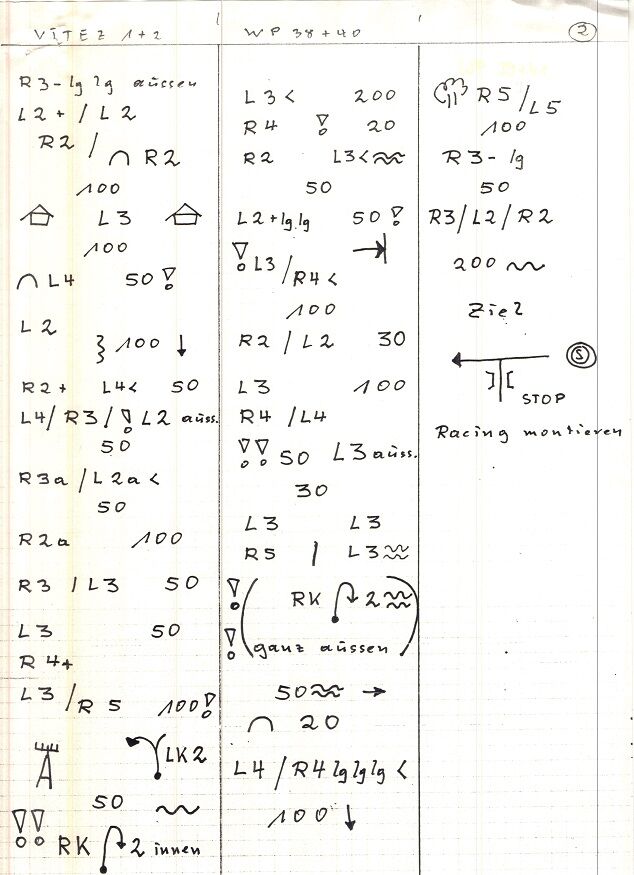 VITEZ 1+2
WP 38+40
2
R3-lg lg aüssen
L2+/L2
R2/
R2
100
L3
100
L4 50!
L2
100 ↓
R2+ L4< 50
L4/R3/! L2 aüss.
50
R3a/L2a<
50
R2a 100
R3/L3 50
L3 50
R4+
L3/R5 100!
LK2
50
!! RK 2 innen
L3< 200
R4 ! 20
R2 L3<
50
L2+lg lg 50!
! L3/R4< →
100
R2/L2 30
L3 100
R4/L4
!! 50 L3 aüss.
30
L3 L3
R5 / L3
! (RK 2
! ganz aüssen)
50 →
20
L4/R4 lg lg lg <
100 ↓
R5/L5
100
R3-lg
50
R3/L2/R2
200
Ziel
S
STOP
Racing montieren